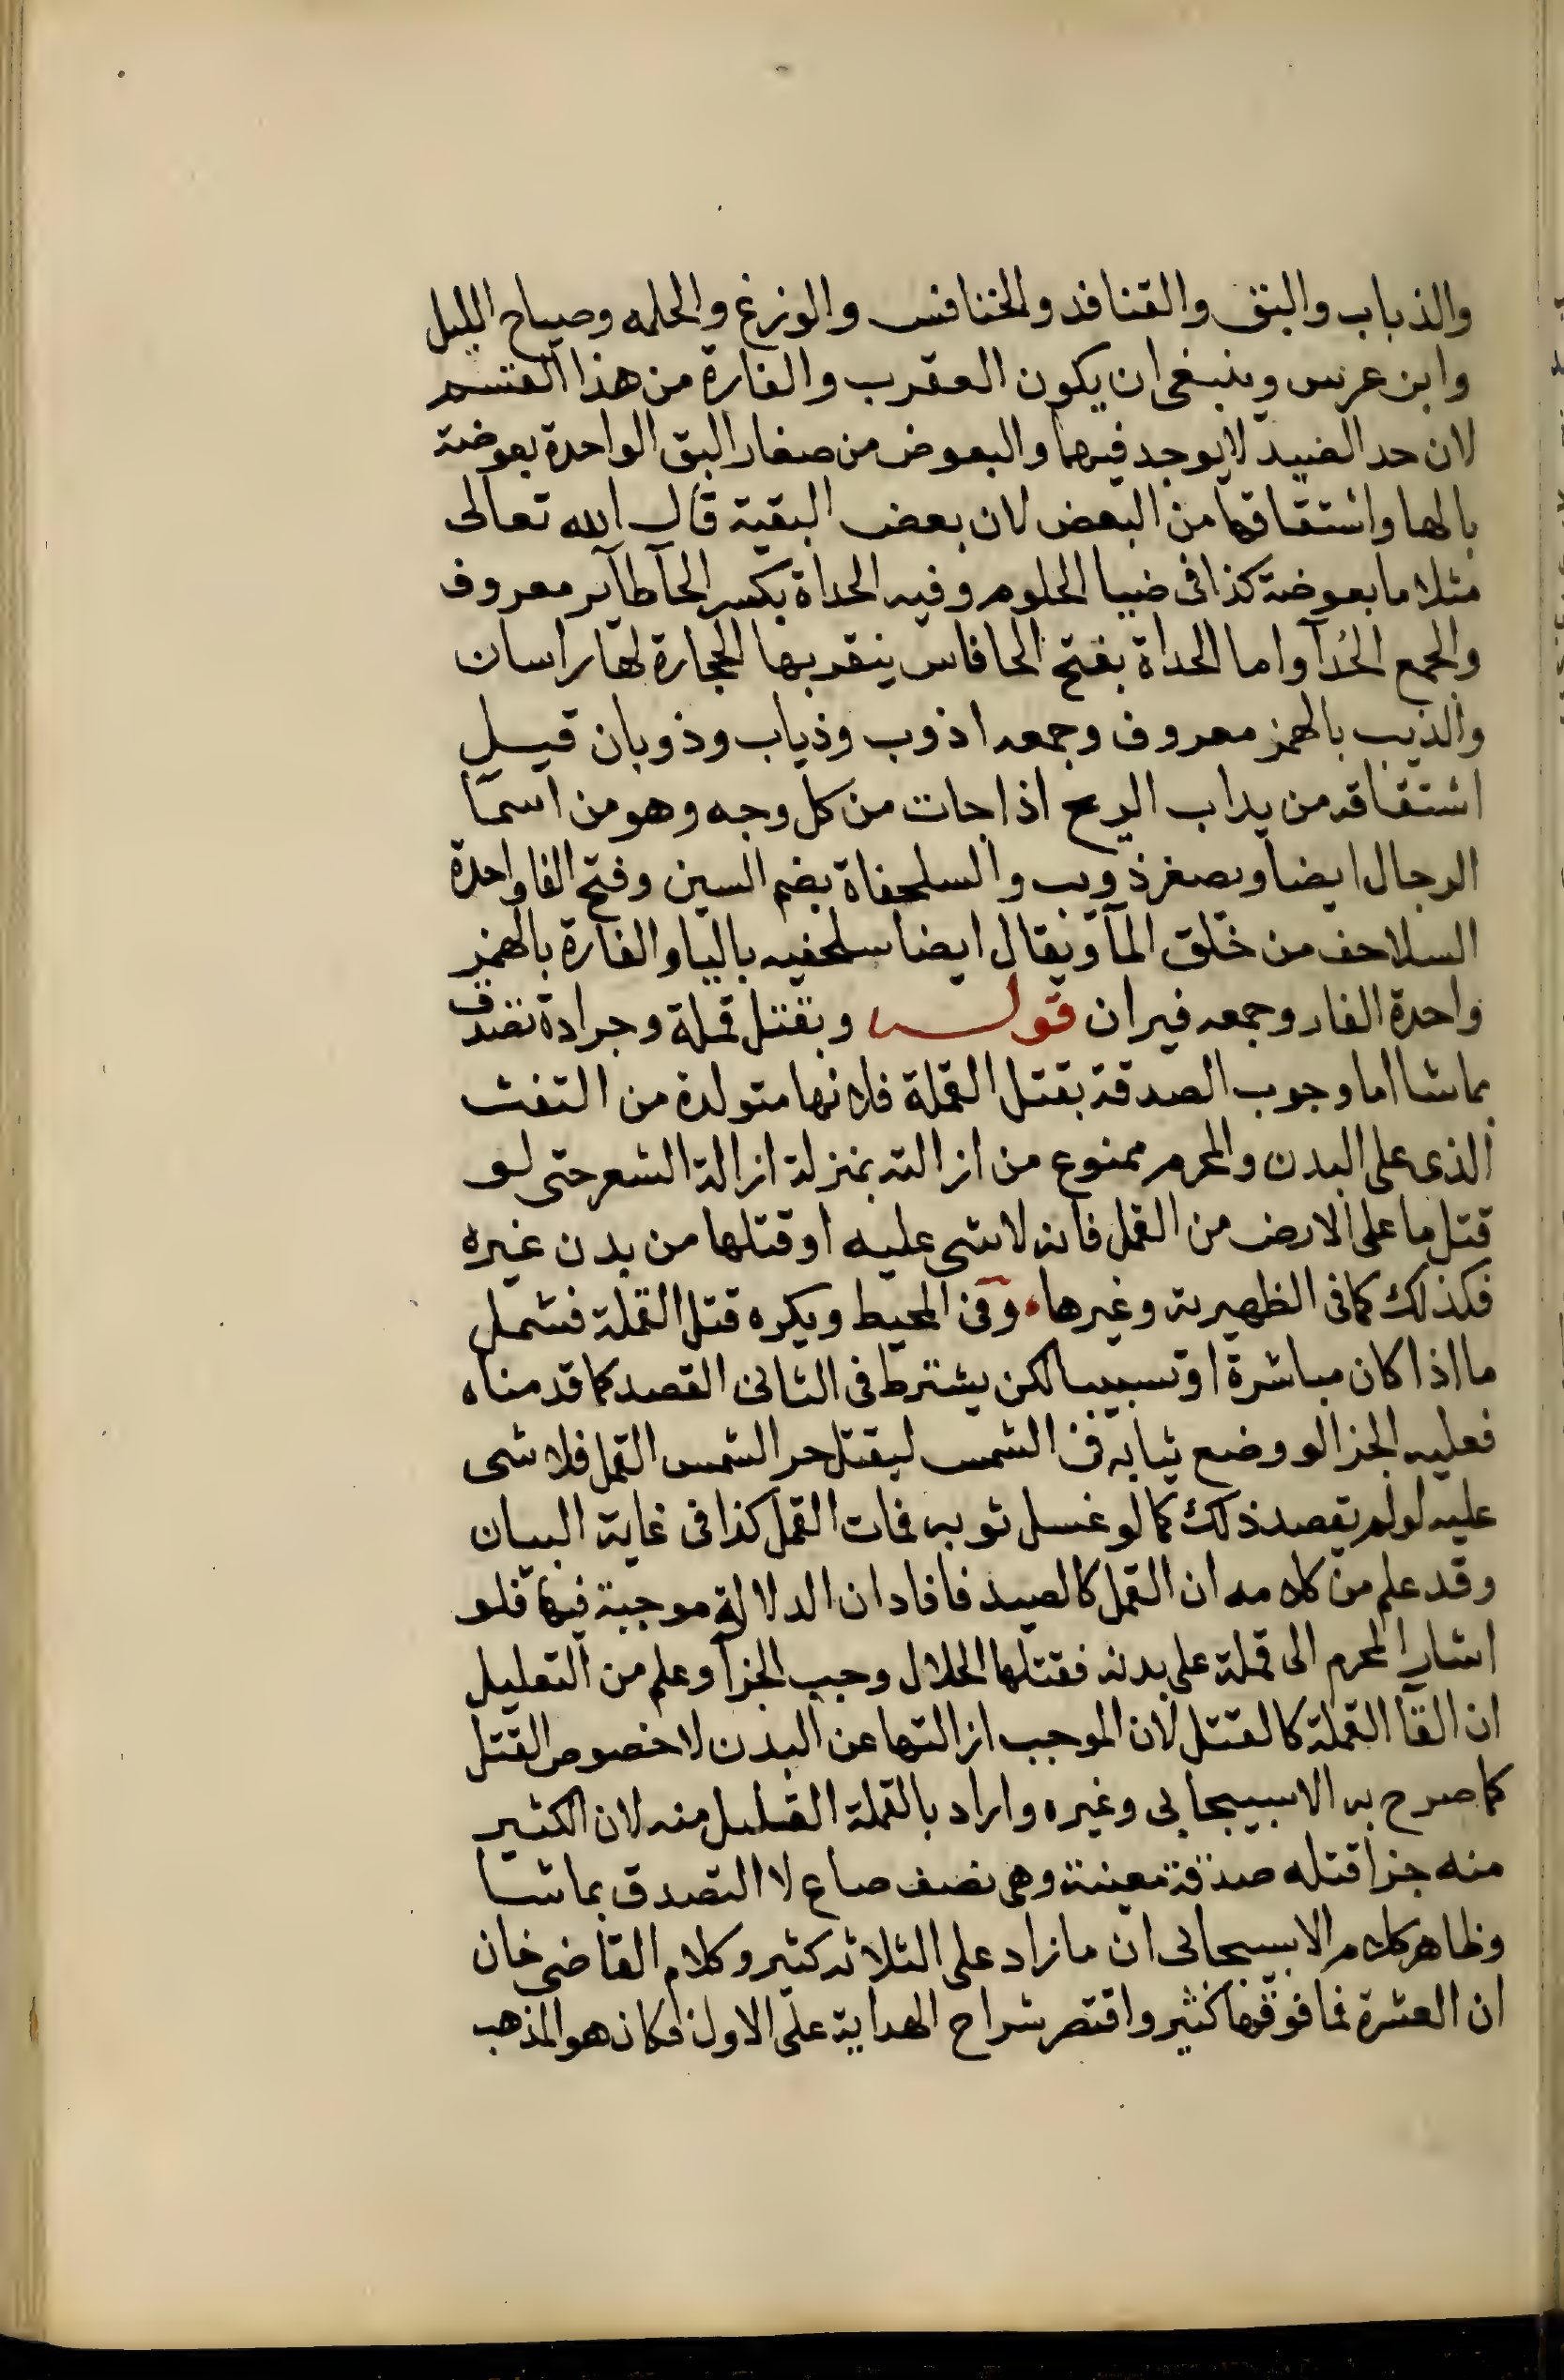 والذباب والبق والقنافد والخنافس والوزغ والحلمه وصياح الليل
وابن عرس وينبغى ان يكون العقرب والفارة من هذا القسم
لان حد الصيد لا يوجد فيهما والبعوض من صغار البق الواحدة بعوضة
بالها واشتقاقها من البعض لان بعض البقية قال الله تعالى
مثلا ما بعوضة كذا فى ضيا الحلوم وفيه الحداة بكسر الحآ طآير معروف
والجمع الحُدآ واما الحداة بفتح الحا فاس ينقر بها الحجارة لها راسان
والذيب بالهمز معروف وجمعه اذوب وذياب وذوبان قيل
اشتقاقه من يداب الريح اذا جات من كل وجه وهو من اسما
الرجال ايضا ويصغر ذويب والسلحفاة بضم السين وفتح الفا واحدة
السلاحف من خلق المآ ويقال ايضا سلحفيه باليا والفارة بالهمز
واحدة الفار وجمعه فيران قوله وبقتل قملة وجرادة تصدق
بماشا اما وجوب الصدقة بقتل القملة فلانها متولدة من التفث
الذى على البدن والمحرم ممنوع من ازالته بمنزلة ازالة الشعر حتى لو
قتل ما على الارض من القمل فانه لا شى عليه او قتلها من بدن غيره
فكذلك كما فى الظهيرية وغيرها وفى المحيط ويكره قتل القملة فشمل
ما اذا كان مباشرة او تسبيبا لكن يشترط فى الثانى القصد كما قدمناه
فعليه الجزا لو وضع ثيابه فى الشمس ليقتل حر الشمس القمل فلا شى
عليه لو لم يقصد ذلك كما لو غسل ثوبه فمات القمل كذا فى غاية البيان
وقد علم من كلامه ان القمل كالصيد فافاد ان الدلالة موجبة فيها فلو
اشار المحرم الى قملة على بدنه فقتلها الحلال وجب الجزآ وعلم من التعليل
ان القآ القملة كالقتل لان الموجب ازالتها عن البدن لا خصوص القتل
كما صرح به الاسبيجابى وغيره واراد بالقملة القليل منه لان الكثير
منه جزا قتله صدقة معينة وهى نصف صاع لا التصدق بماشا
وظاهر كلام الاسبيجابى ان ما زاد على الثلاثه كثير وكلام القاضى خان
ان العشرة فما فوقها كثير واقتصر شراح الهداية على الاول فكان هو المذهب